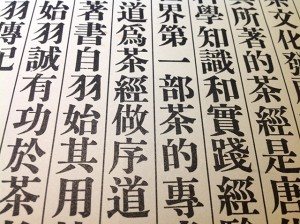 茶文化發
其所著的茶經是唐
科學知識和實踐經
世界第一部茶的專
道為茶經做序道
著書自羽始其用
始羽誠有功於茶
羽傳記